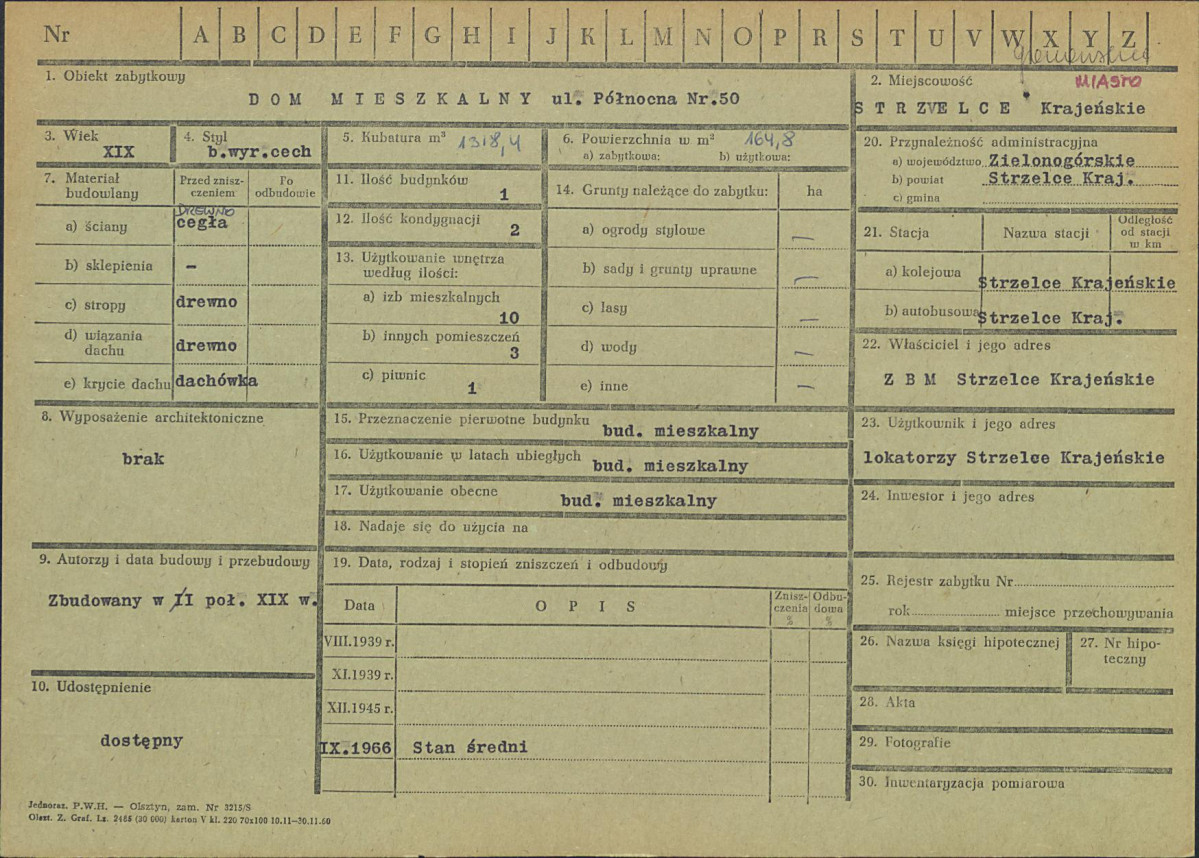 Nr A B C D E F G H I J K L M N O P R S T U V W X Y Z
1. Obiekt zabytkowy
DOM MIESZKALNY ul. Północna Nr.50
2. Miejscowość
MIASTO
STRZELCE Krajeńskie
3. Wiek
XIX
4. Styl
b.wyr.cech
5. Kubatura m³ 1318,4
6. Powierzchnia w m² 164,8
a) zabytkowa: b) użytkowa:
20. Przynależność administracyjna
a) województwo Zielonogórskie
b) powiat Strzelce Kraj.
c) gmina
7. Materiał budowlany
Przed znisz-
czeniem
Po
odbudowie
a) ściany
DREWNO
cegła
b) sklepienia –
c) stropy drewno
d) wiązania
dachu
drewno
e) krycie dachu dachówka
11. Ilość budynków
1
12. Ilość kondygnacji
2
13. Użytkowanie wnętrza
według ilości:
a) izb mieszkalnych
10
b) innych pomieszczeń
3
c) piwnic
1
14. Grunty należące do zabytku: ha
a) ogrody stylowe —
b) sady i grunty uprawne —
c) lasy —
d) wody —
e) inne —
21. Stacja Nazwa stacji
Odległość
od stacji
w km
a) kolejowa Strzelce Krajeńskie
b) autobusowa Strzelce Kraj.
22. Właściciel i jego adres
Z B M Strzelce Krajeńskie
8. Wyposażenie architektoniczne
brak
15. Przeznaczenie pierwotne budynku
bud. mieszkalny
16. Użytkowanie w latach ubiegłych
bud. mieszkalny
17. Użytkowanie obecne
bud. mieszkalny
18. Nadaje się do użycia na
23. Użytkownik i jego adres
lokatorzy Strzelce Krajeńskie
24. Inwestor i jego adres
9. Autorzy i data budowy i przebudowy
Zbudowany w II poł. XIX w.
19. Data, rodzaj i stopień zniszczeń i odbudowy
Data OPIS
Znisz-
czenia
%
Odbu-
dowa
%
VIII.1939 r.
XI.1939 r.
XII.1945 r.
IX.1966 Stan średni
25. Rejestr zabytku Nr
rok miejsce przechowywania
26. Nazwa księgi hipotecznej
27. Nr hipo-
teczny
10. Udostępnienie
dostępny
28. Akta
29. Fotografie
30. Inwentaryzacja pomiarowa
Jednoraz. P.W.H. — Olsztyn, zam. Nr 3215/S
Olszt. Z. Graf. Lz. 2465 (30 000) karton V kl. 220 70x100 10.11—30.11.60